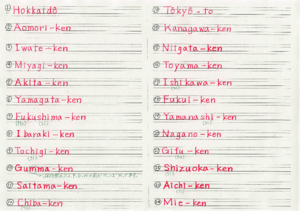 ① Hokkaidō
② Aomori-ken
③ Iwate-ken
④ Miyagi-ken
⑤ Akita-ken
⑥ Yamagata-ken
⑦ Fukushima-ken
⑧ Ibaraki-ken
⑨ Tochigi-ken
⑩ Gumma-ken
⑪ Saitama-ken
⑫ Chiba-ken
⑬ Tōkyō-to
⑭ Kanagawa-ken
⑮ Niigata-ken
⑯ Toyama-ken
⑰ Ishikawa-ken
⑱ Fukui-ken
⑲ Yamanashi-ken
⑳ Nagano-ken
㉑ Gifu-ken
㉒ Shizuoka-ken
㉓ Aichi-ken
㉔ Mie-ken